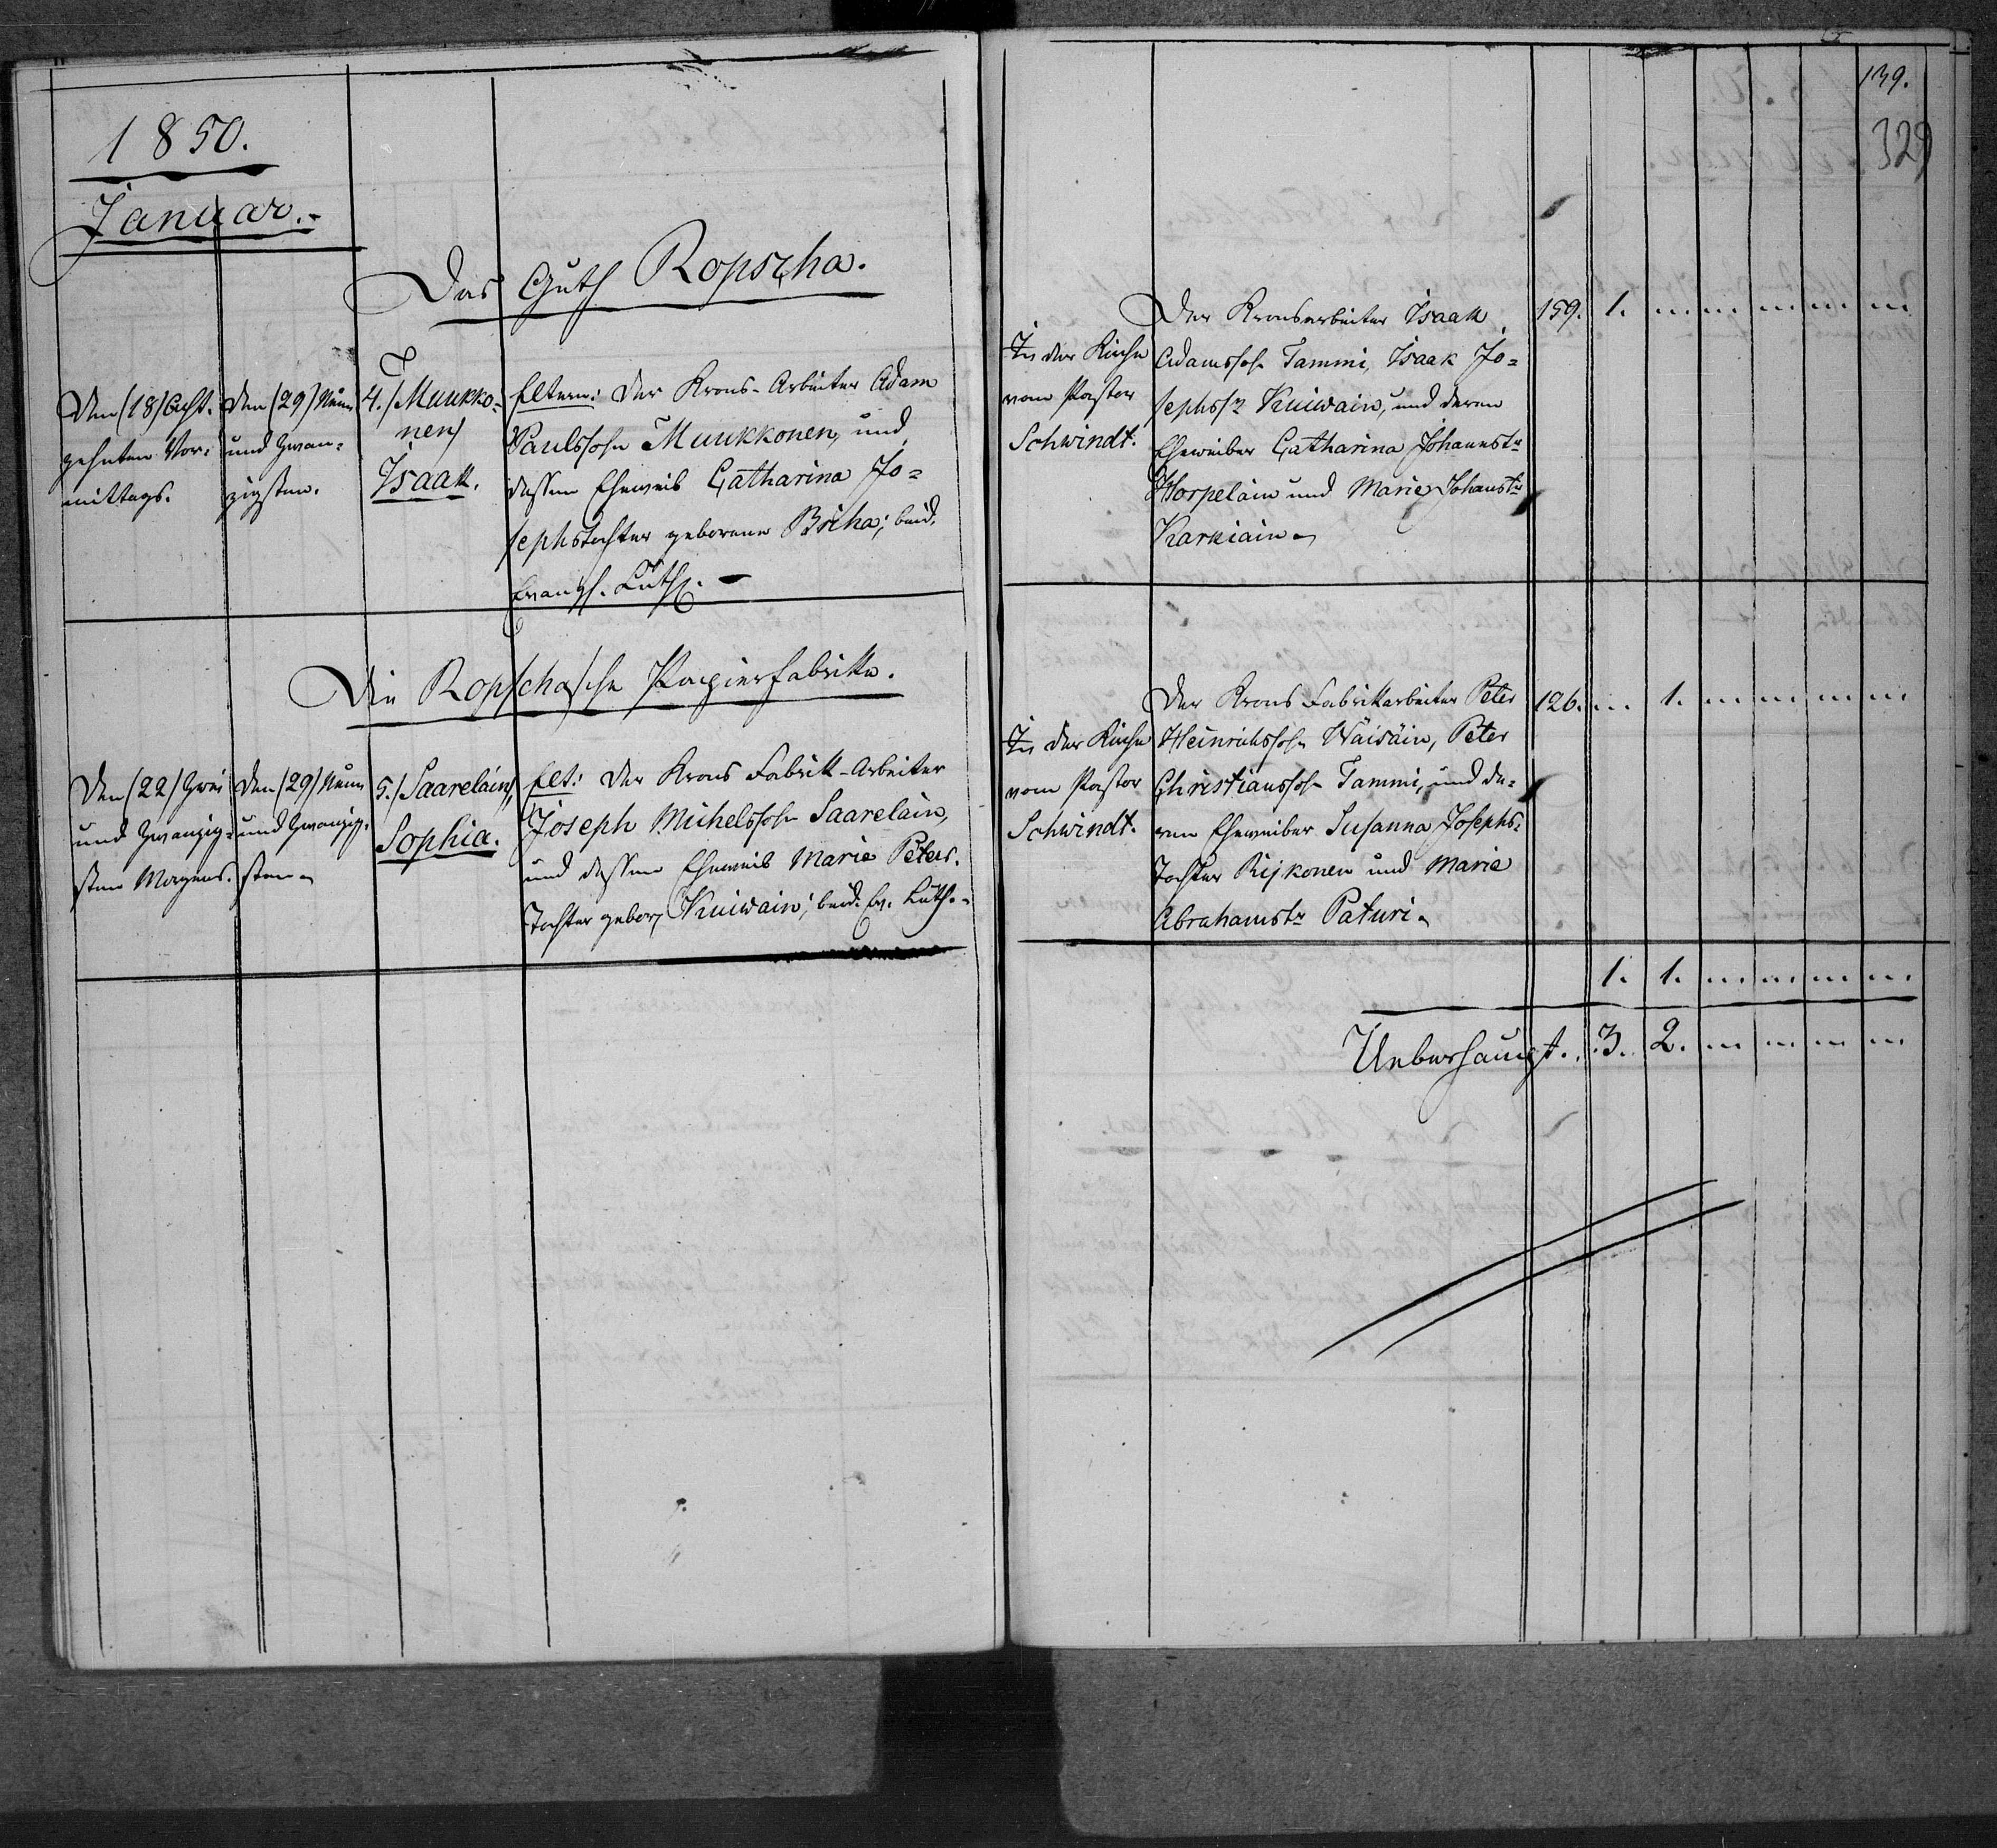 1850.
Januar.
Das Guth Ropscha.
Den (18) Acht-
zehnten Vor-
mittags.
Den (29) Neun
und zwan-
zigsten.
4.) Muukko-
nen)
Isaak.
Eltern: Der Krons-Arbeiter Adam
Paulssohn Muukkonen, und
dessen Eheweib Catharina Jo-
sephstochter geborene Briha; beid.
Evangl. Luth. –
Die Ropschasche Papierfabrike.
Den (22) Zwei
und Zwanzig-
sten Morgens.
Den (29) Neun
und Zwanzig-
sten
5.) Saareläin)
Sophia.
Elt: Der Krons Fabrik-Arbeiter
Joseph Michelssohn Saareläin,
und dessen Eheweib Marie Peters-
tochter gebor. Kuiwain; beid. Ev. Luth.
139.
329
In der Kirche
vom Pastor
Schwindt.
Der Kronsarbeiter Isaak
Adamssohn Tammi, Isaak Jo-
sephss. Kuiwain, und deren
Eheweiber Catharina Johannstr
Horpeläin und Marie Johanstr
Karkiain
159. 1. ... ... ... ... ...
In der Kirche
vom Pastor
Schwindt.
Der Krons Fabrikarbeiter Peter
Heinrichssohn Wäisäin, Peter
Christianssohn Tammi, und de-
ren Eheweiber Susanna Josephs-
tochter Rijkonen und Marie
Abrahamstr Paturi
126. ... 1. ... ... ... ...
1. 1. ... ... ... ...
Ueberhaupt. 3. 2. ... ... ... ...